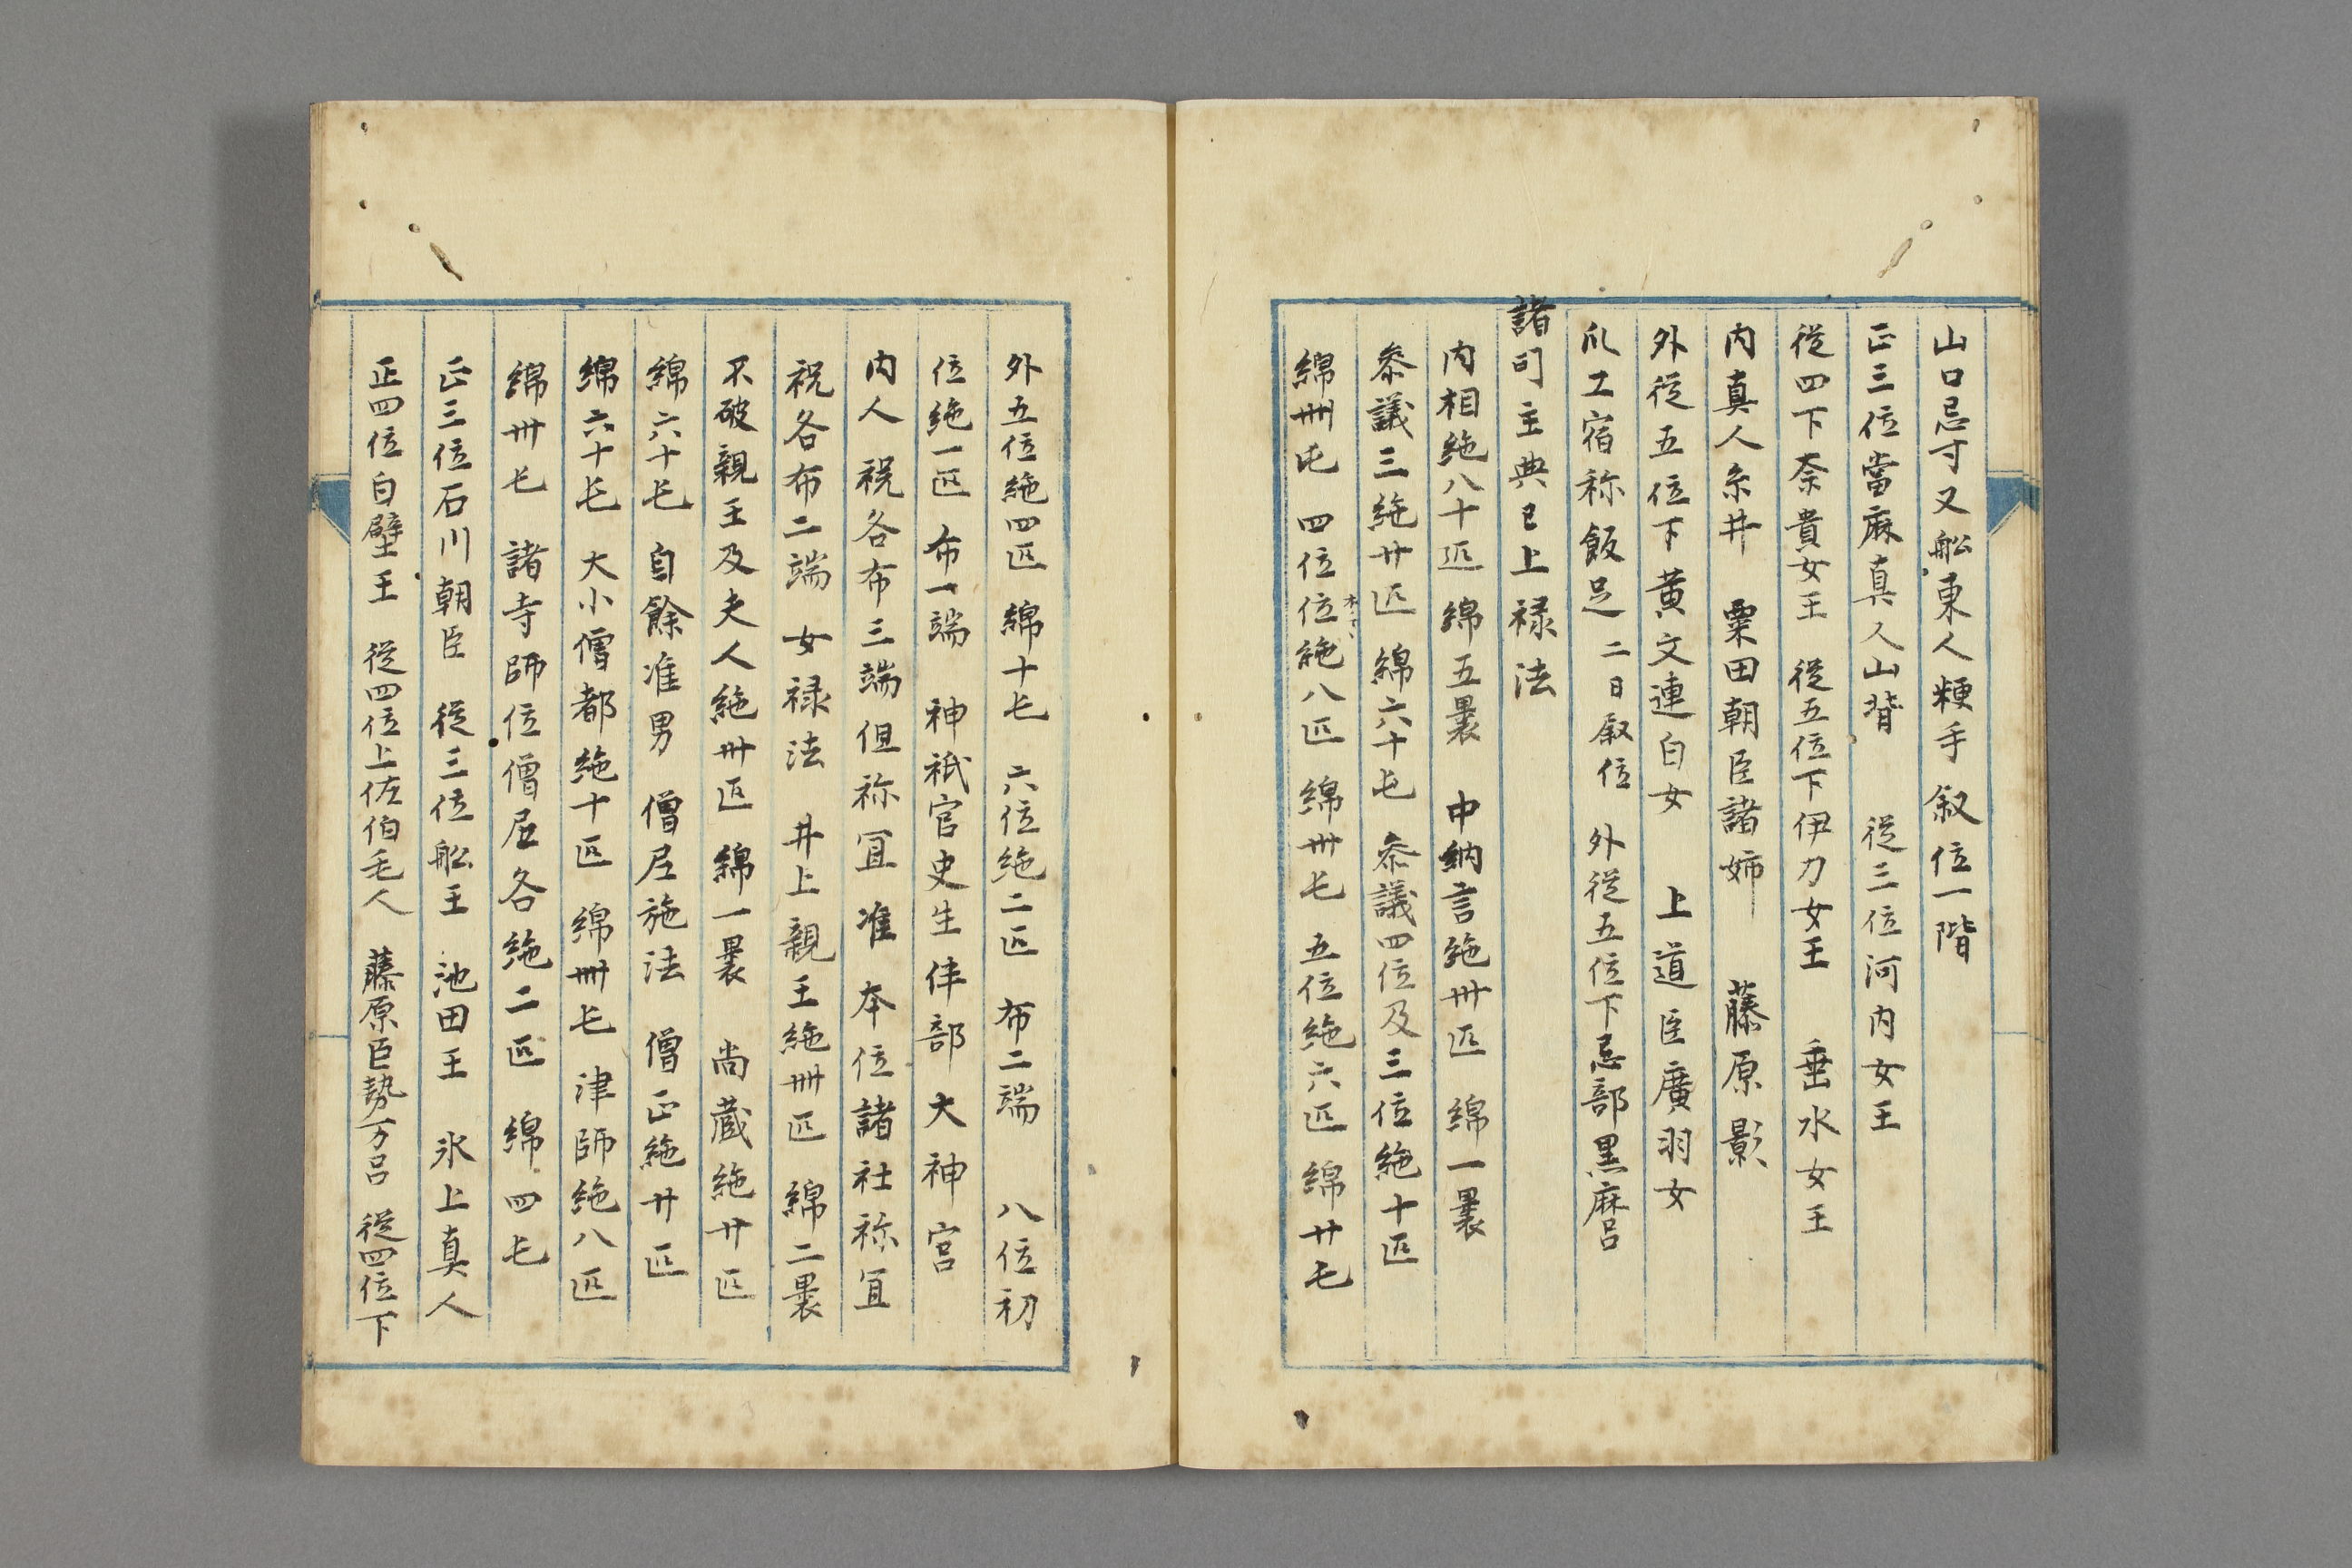 山口忌寸又舩東人粳手叙位一階
正三位當麻真人山背　従三位河内女王
従四下奈貴女王　従五位下伊刀女王　垂水女王
内真人糸井　粟田朝臣諸姉　藤原影
外従五位下黄文連白女　上道臣廣羽女
爪工宿祢飯足　二日叙位　外従五位下忌部黒麻呂
諸司主典已上禄法
内相絁八十匹　綿五褁　中納言絁卅匹　綿一褁
叅議三絁廿匹　綿六十屯　叅議四位及三位絁十匹
綿卌屯　四位位絁八匹　綿卅屯　五位絁六匹　綿廿屯
外五位絁四匹　綿十屯　六位絁二匹　布二端　八位初
位絁一匹　布一端　神祇官史生伴部大神宮
内人　祝各布三端　但祢冝准本位諸社祢冝
祝各布二端　女禄法　井上親王絁卌匹　綿二褁
不破親王及夫人絁卅匹　綿一褁　尚蔵絁廿匹
綿六十屯　自餘准男　僧尼施法　僧正絁廿匹
綿六十屯　大小僧都絁十匹　綿卌屯　津師絁八匹
綿卅屯　諸寺師位僧尼各絁二匹　綿四屯
正三位石川朝臣　従三位舩王　池田王　氷上真人
正四位白壁王　従四位上佐伯毛人　藤原臣勢万呂　従四位下